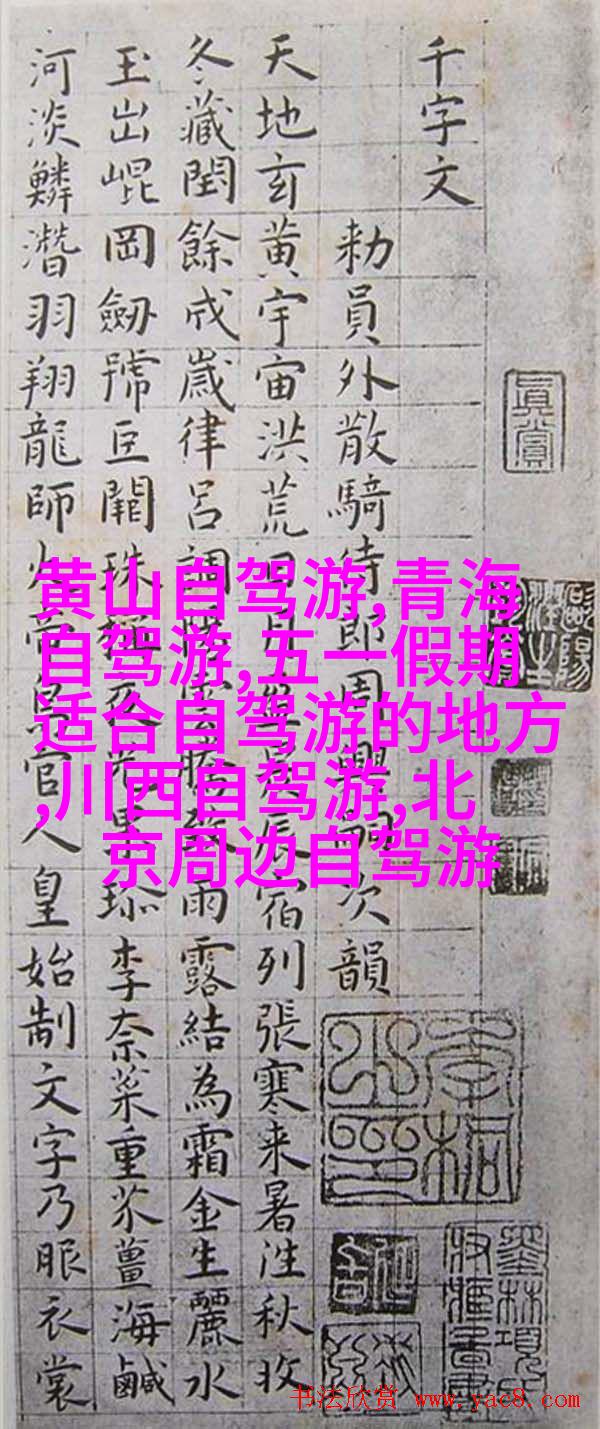 千字文
勑員外散騎侍郎周興嗣次韻
天地玄黃宇宙洪荒日月盈昃辰宿列張寒来暑往秋收
冬藏閏餘成歲律呂調陽雲騰致雨露結為霜金生麗水
玉出崐岡劒號巨闕珠稱夜光果珎李奈菜重芥薑海鹹
河淡鱗潜羽翔龍師火帝鳥官人皇始制文字乃服衣裳
黄山自驾游,青海
自驾游,五一假期
适合自驾游的地方
,川西自驾游,北
京周边自驾游
眞賞
书法欣赏 www.yac8.com